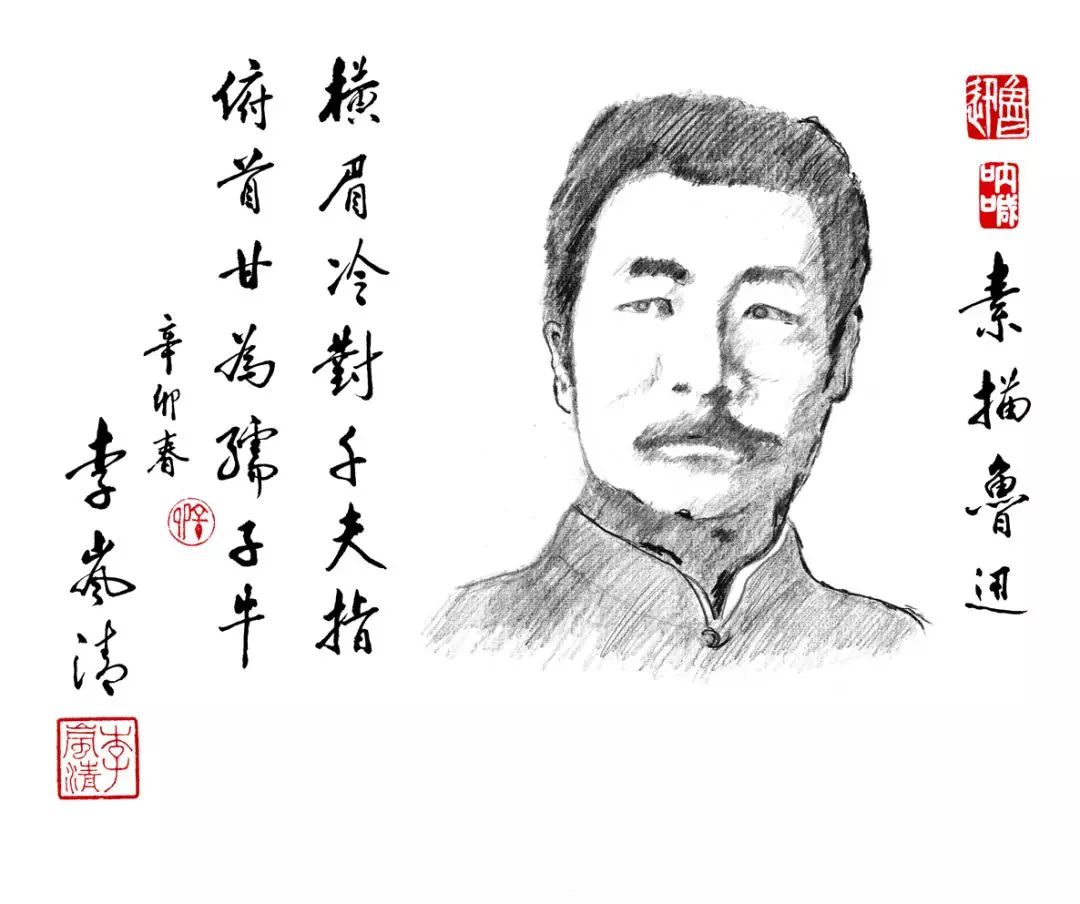 魯迅
吶喊
素描魯迅
橫眉冷對千夫指
俯首甘為孺子牛
辛卯春
李嵐清
李嵐清